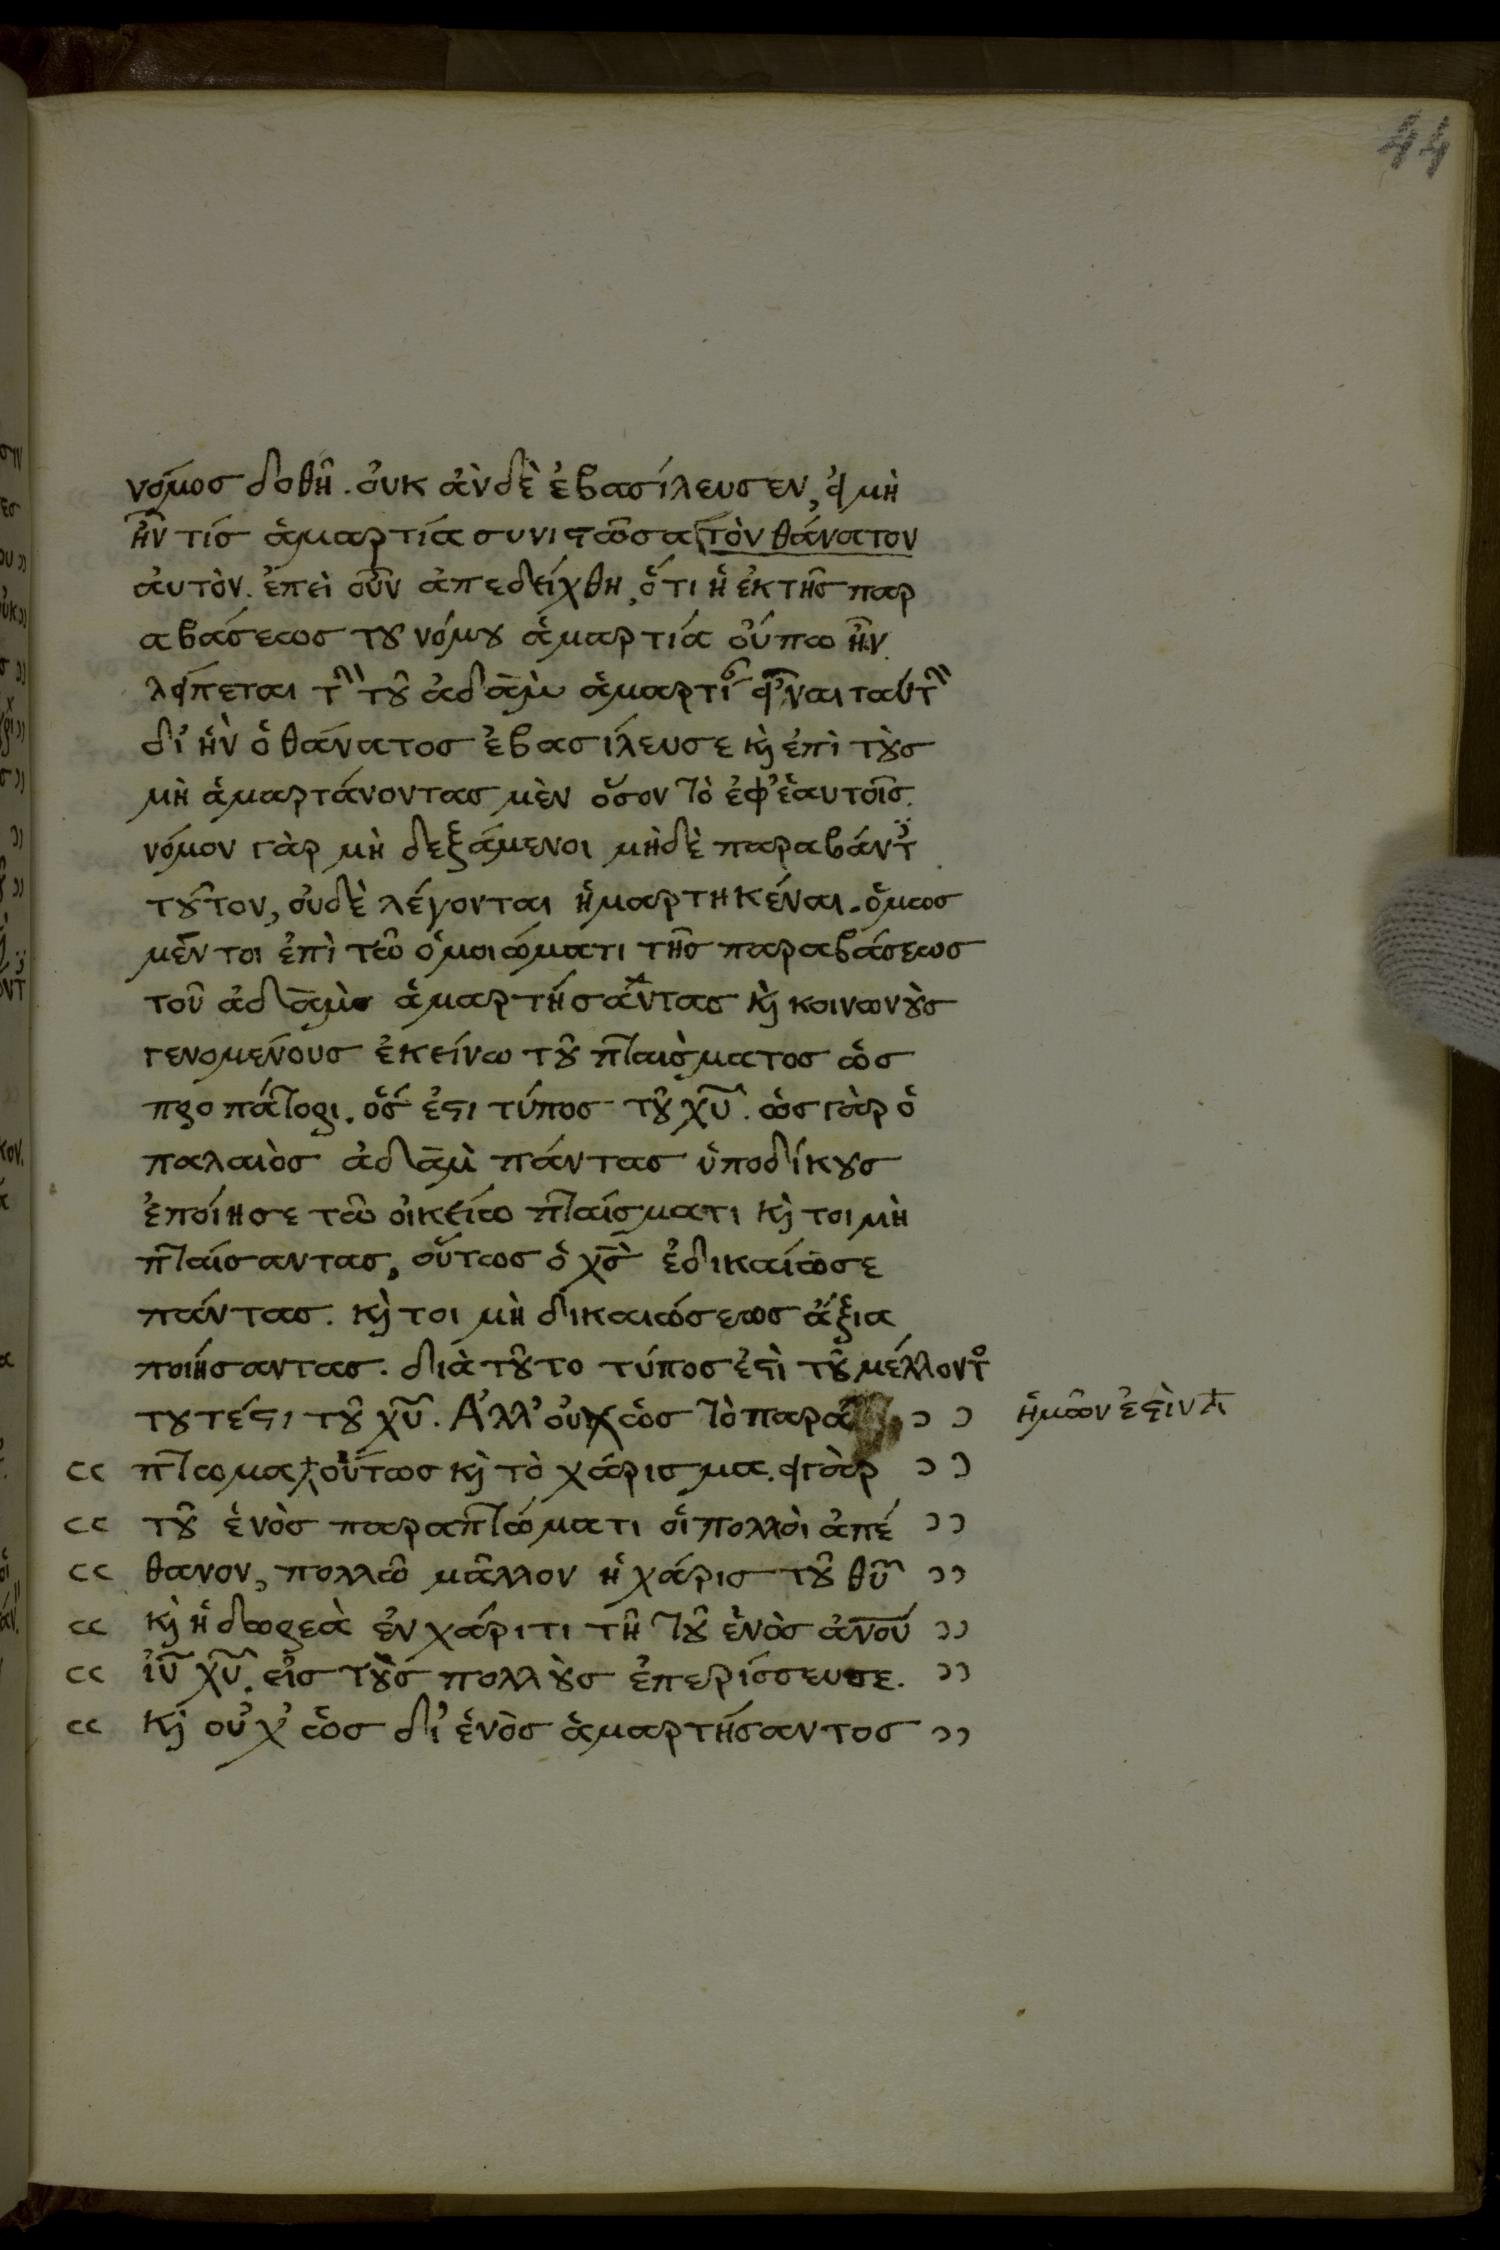 44
νόμος δοθῆ. οὐκ ἂν δὲ ἐβασίλευσεν, εἰ μὴ
ἦν τίς ἁμαρτία συνιστῶσα τὸν θάνατον
αὐτὸν. ἐπεὶ οὖν ἀπεδείχθη, ὅτι ἡ ἐκ τῆς παρ
αβάσεως του νόμου ἁμαρτία οὔπω ἦν.
λείπεται τὴν τοῦ ἀδὰμ ἁμαρτίαν εἶναι ταύτην
δι' ἣν ὁ θάνατος ἐβασίλευσε κὶ ἐπὶ τοὺς
μὴ ἁμαρτάνοντας μὲν ὅσον τὸ ἐφ' ἑαυτοῖς.
νόμον γὰρ μὴ δεξάμενοι μηδὲ παραβάντες
τοῦτον, οὐδὲ λέγονται ἡμαρτηκέναι. ὅμως
μέντοι ἐπὶ τῶ ὁμοιώματι τῆς παραβάσεως
τοῦ ἀδὰμ ἁμαρτήσαντας κὶ κοινωνοὺς
γενομένους ἐκείνω τοῦ πταίσματος ὡς
προπάτορι. ὅς ἐστι τύπος τοῦ χυ. ὡς γὰρ ὁ
παλαιὸς ἀδὰμ πάντας ὑποδίκους
ἐποίησε τῶ οἰκείω πταίσματι κὶ τοι μὴ
πταίσαντας, οὕτως ὁ χς ἐδικαίωσε
πάντας. κὶ τοι μὴ δικαιώσεως ἄξια
ποιήσαντας. διὰ τοῦτο τύπος ἐστὶ τοῦ μέλλοντος
τουτέστι τοῦ χυ. Ἀλλ' οὐχ ὡς τὸ παρά
ἡμῶν ἐστὶν
πτωμα οὕτως κὶ τὸ χάρισμα. εἰ γὰρ
τοῦ ἑνὸς παραπτώματι οἱ πολλοὶ ἀπέ
θανον, πολλῶ μᾶλλον ἡ χάρις τοῦ θυ
κὶ ἡ δωρεὰ ἐν χάριτι τῆ τοῦ ἑνὸς ἀνου
ιυ χυ. εἰς τοὺς πολλοὺς ἐπερίσσευσε.
κὶ οὐχ ὡς δι' ἑνὸς ἁμαρτήσαντος